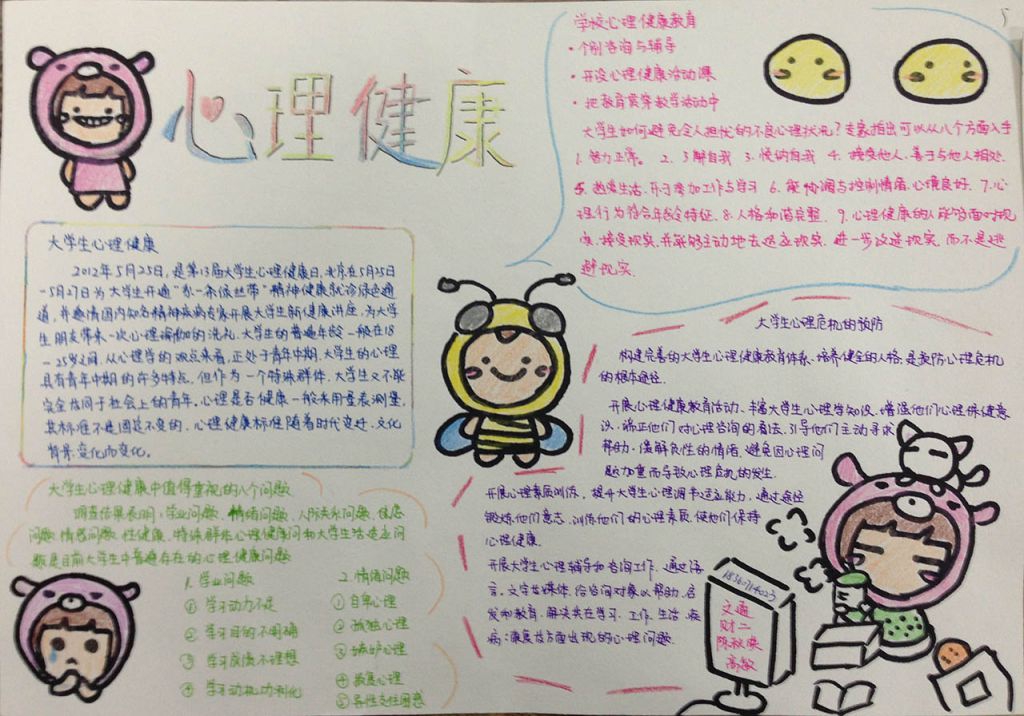 心理健康
5
学校心理健康教育
· 个别咨询与辅导
· 开设心理健康活动课
· 把教育贯穿教学活动中
大学生如何避免令人担忧的不良心理状况？专家指出可以从八个方面入手
1. 智力正常。 2. 了解自我 3. 悦纳自我 4. 接受他人,善于与他人相处.
5. 热爱生活,乐于参加工作与学习 6. 能协调与控制情绪,心境良好. 7.心
理行为符合年龄特征. 8.人格和谐完整. 9.心理健康的人能够面对现
实,接受现实,并能够主动地去适应现实,进一步改造现实,而不是逃
避现实.
大学生心理健康
2012年5月25日,是第13届大学生心理健康日,
5月25日
-5月27日为大学生开通“ 一条低丝带”精神健康就诊绿色通
道,并邀请国内知名精神疾病专家开展大学生心理健康讲座,为大学
生朋友带来一次心理 的洗礼.大学生的普遍年龄一般在18
-25岁之间,从心理学的观点来看,正处于青年中期,大学生的心理
具有青年中期的许多特点,但作为一个特殊群体,大学生又不能
完全等同于社会上的青年.心理是否健康一般采用量表测量,
其标准不是固定不变的,心理健康标准随着时代变迁,文化
背景变化而变化.
大学生心理健康中值得重视的八个问题
调查结果表明:学业问题、情绪问题、人际关系问题、焦虑
问题、情感问题、性健康、特殊群体心理健康问和大学生活适应问
题是目前大学生中普遍存在的心理健康问题
1. 学业问题
① 学习动力不足
② 学习目的不明确
③ 学习成绩不理想
④ 学习动机功利化
2. 情绪问题
① 自卑心理
② 孤独心理
③ 嫉妒心理
④ 敌意心理
⑤ 异性交往困惑
大学生心理危机的预防
构建完善的大学生心理健康教育体系,培养健全的人格,是预防心理危机
的根本途径.
开展心理健康教育活动,丰富大学生心理学知识,增强他们心理保健意
识,端正他们对心理咨询的看法,引导他们主动寻求
帮助,缓解负性的情绪,避免因心理问
题加重而导致心理危机的发生.
开展心理素质训练,提升大学生心理调节适应能力,通过途径
锻炼他们意志,训练他们的心理素质,使他们保持
心理健康.
开展大学生心理辅导和咨询工作,通过语
言,文字等媒体,给咨询对象以帮助,启
发和教育,解决其在学习,工作,生活,疾
病,康复等方面出现的心理问题.
交通
财二
高敏